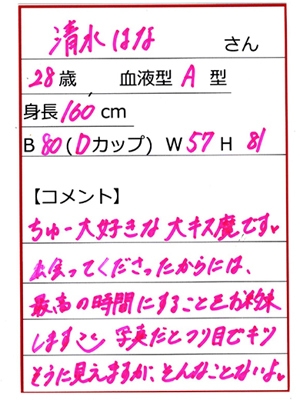 清水 はな さん
28歳 血液型 A 型
身長 160 cm
B 80 (Dカップ) W 57 H 81
【コメント】
ちゅー大好きな大キス魔です♥
出会ってくださったからには、
最高の時間にすることをお約束
します 写真だとつり目でキツ
そうに見えますが、そんなことないよ♥